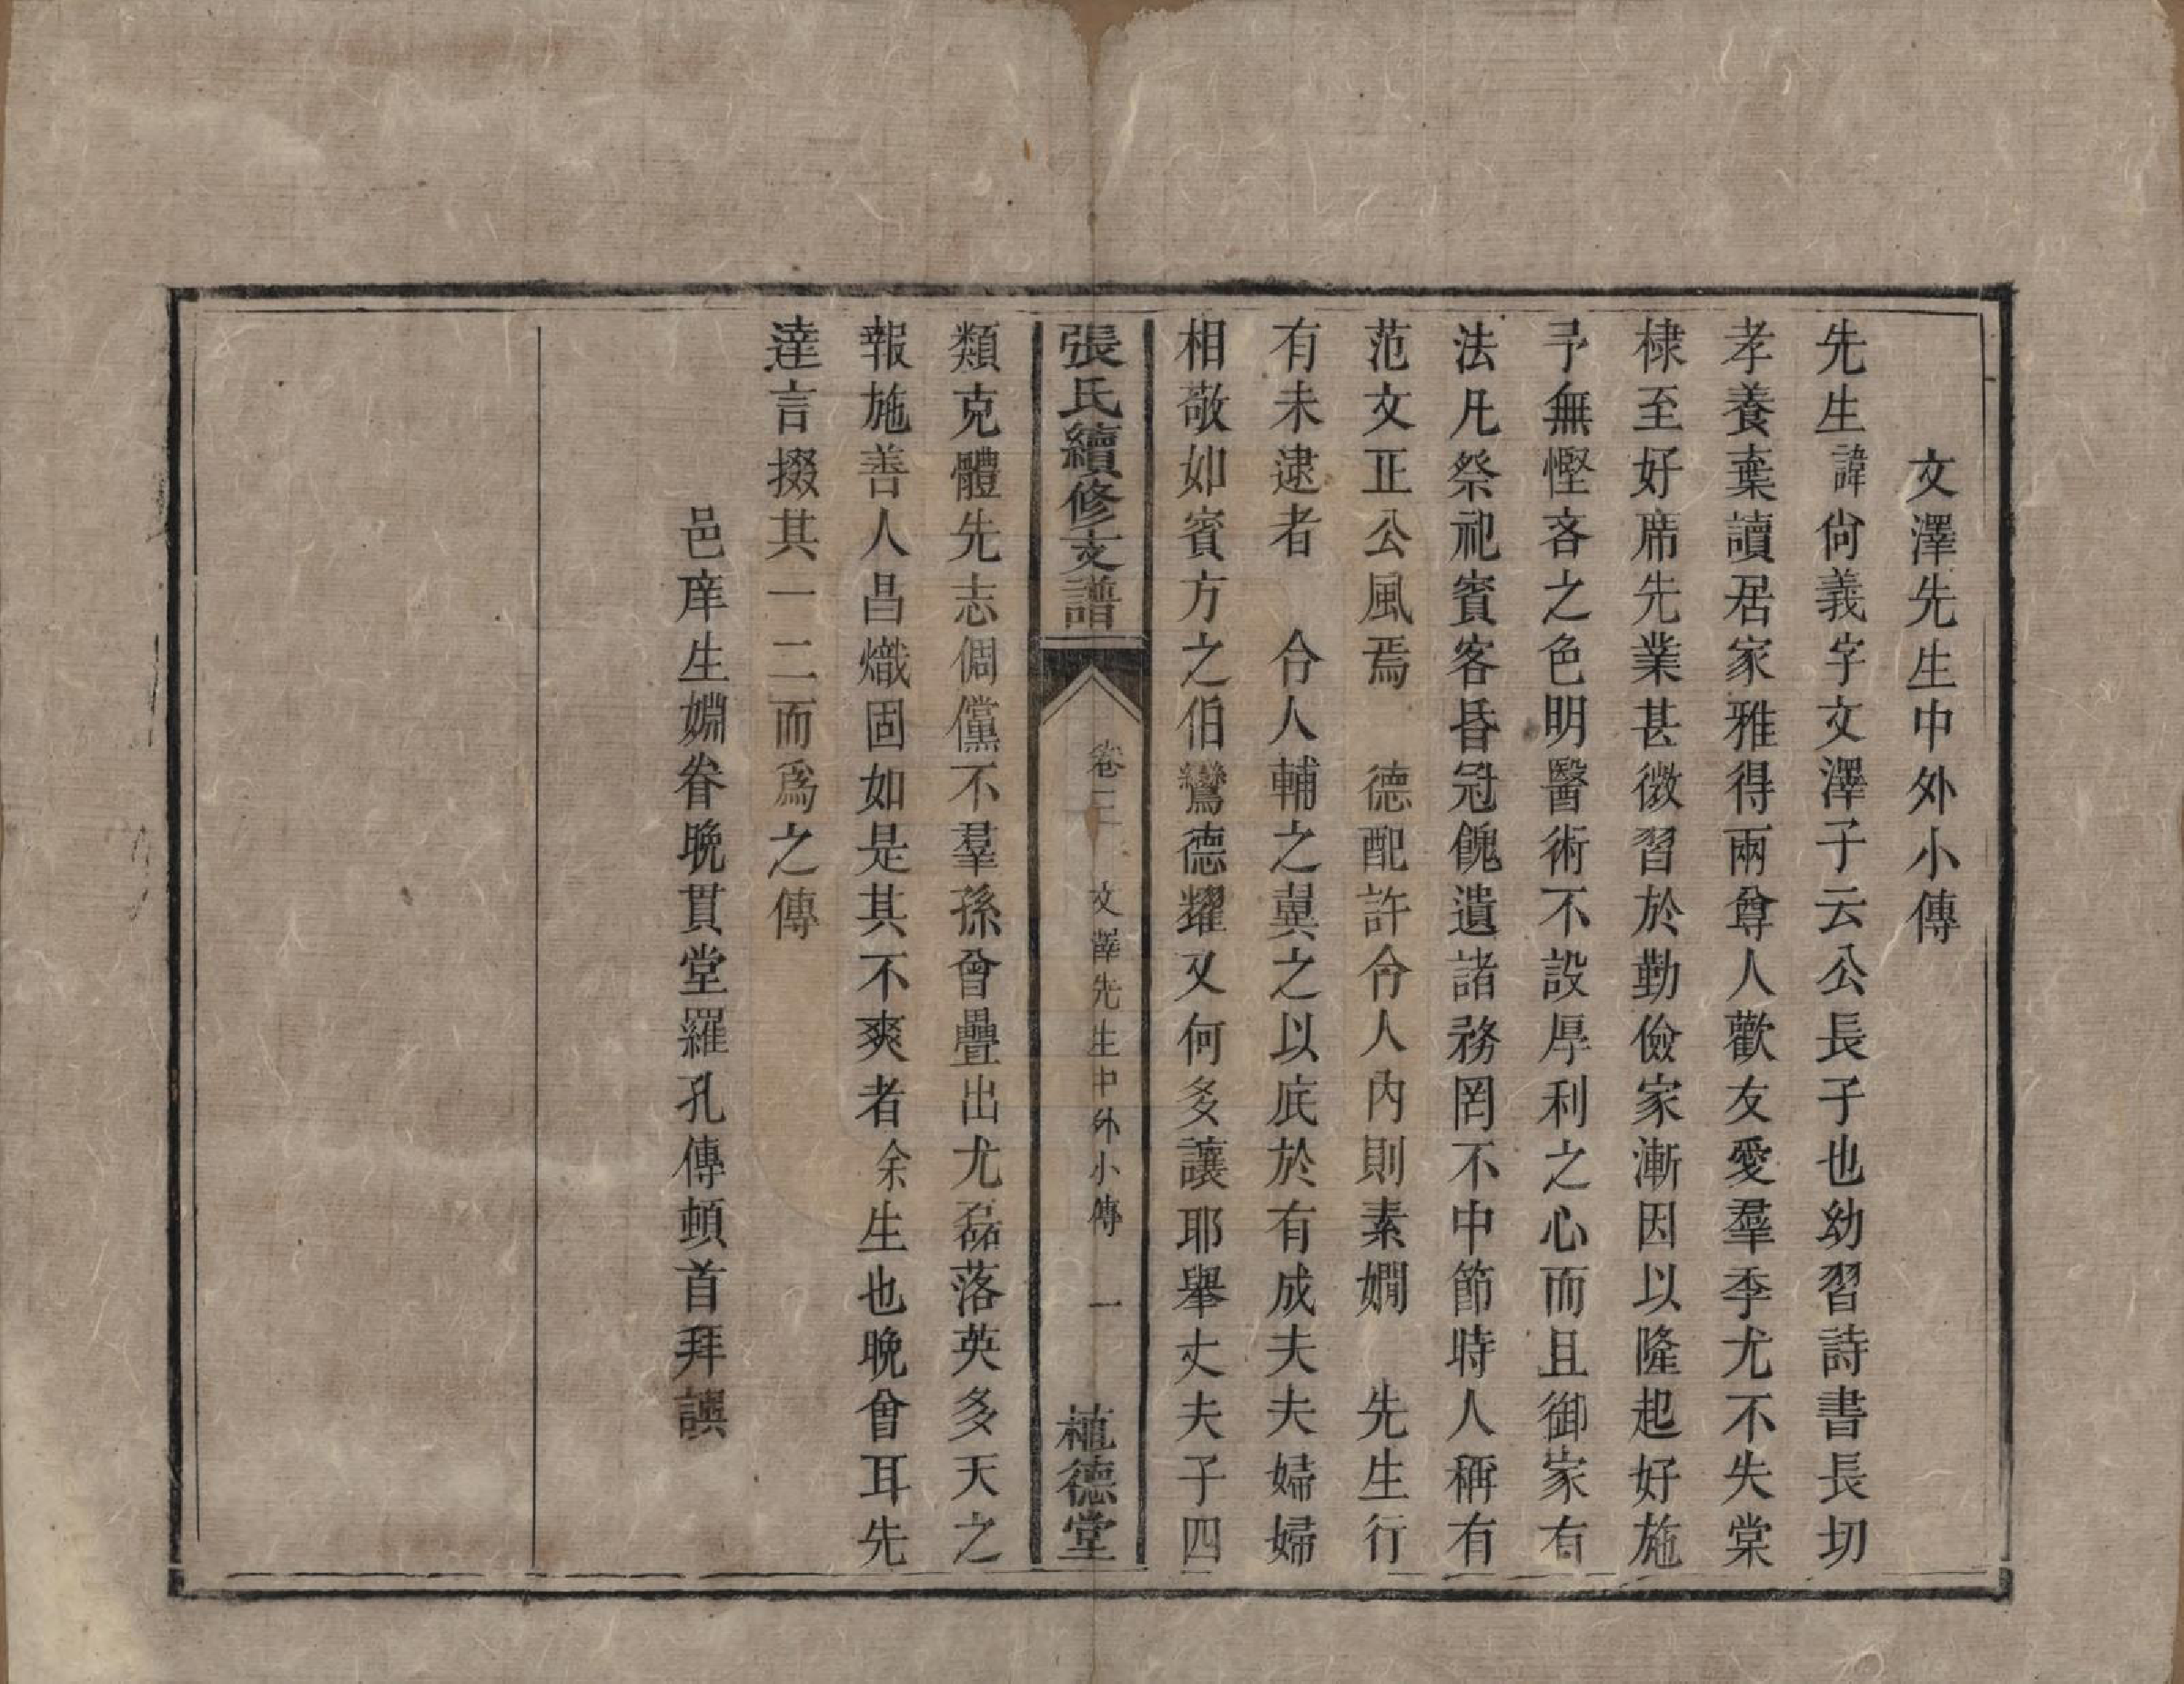 文澤先生中外小傳
先生諱尚義字文澤子云公長子也幼習詩書長切
孝養棄讀居家雅得兩尊人歡友愛羣季尤不失棠
棣至好席先業甚微習於勤儉家漸因以隆起好施
予無慳吝之色明醫術不設厚利之心而且御家有
法凡祭祀賓客昏冠餽遺諸務罔不中節時人稱有
范文正公風焉　德配許令人內則素嫻　先生行
有未逮者　令人輔之翼之以底於有成夫夫婦婦
相敬如賓方之伯鸞德耀又何多讓耶舉丈夫子四
張氏續修支譜
卷二
文澤先生中外小傳
一
植德堂
類克體先志倜儻不羣孫曾疊出尤磊落英多天之
報施善人昌熾固如是其不爽者余生也晚曾耳先
達言掇其一二而爲之傳
邑庠生姻眷晚貫堂羅孔傳頓首拜譔